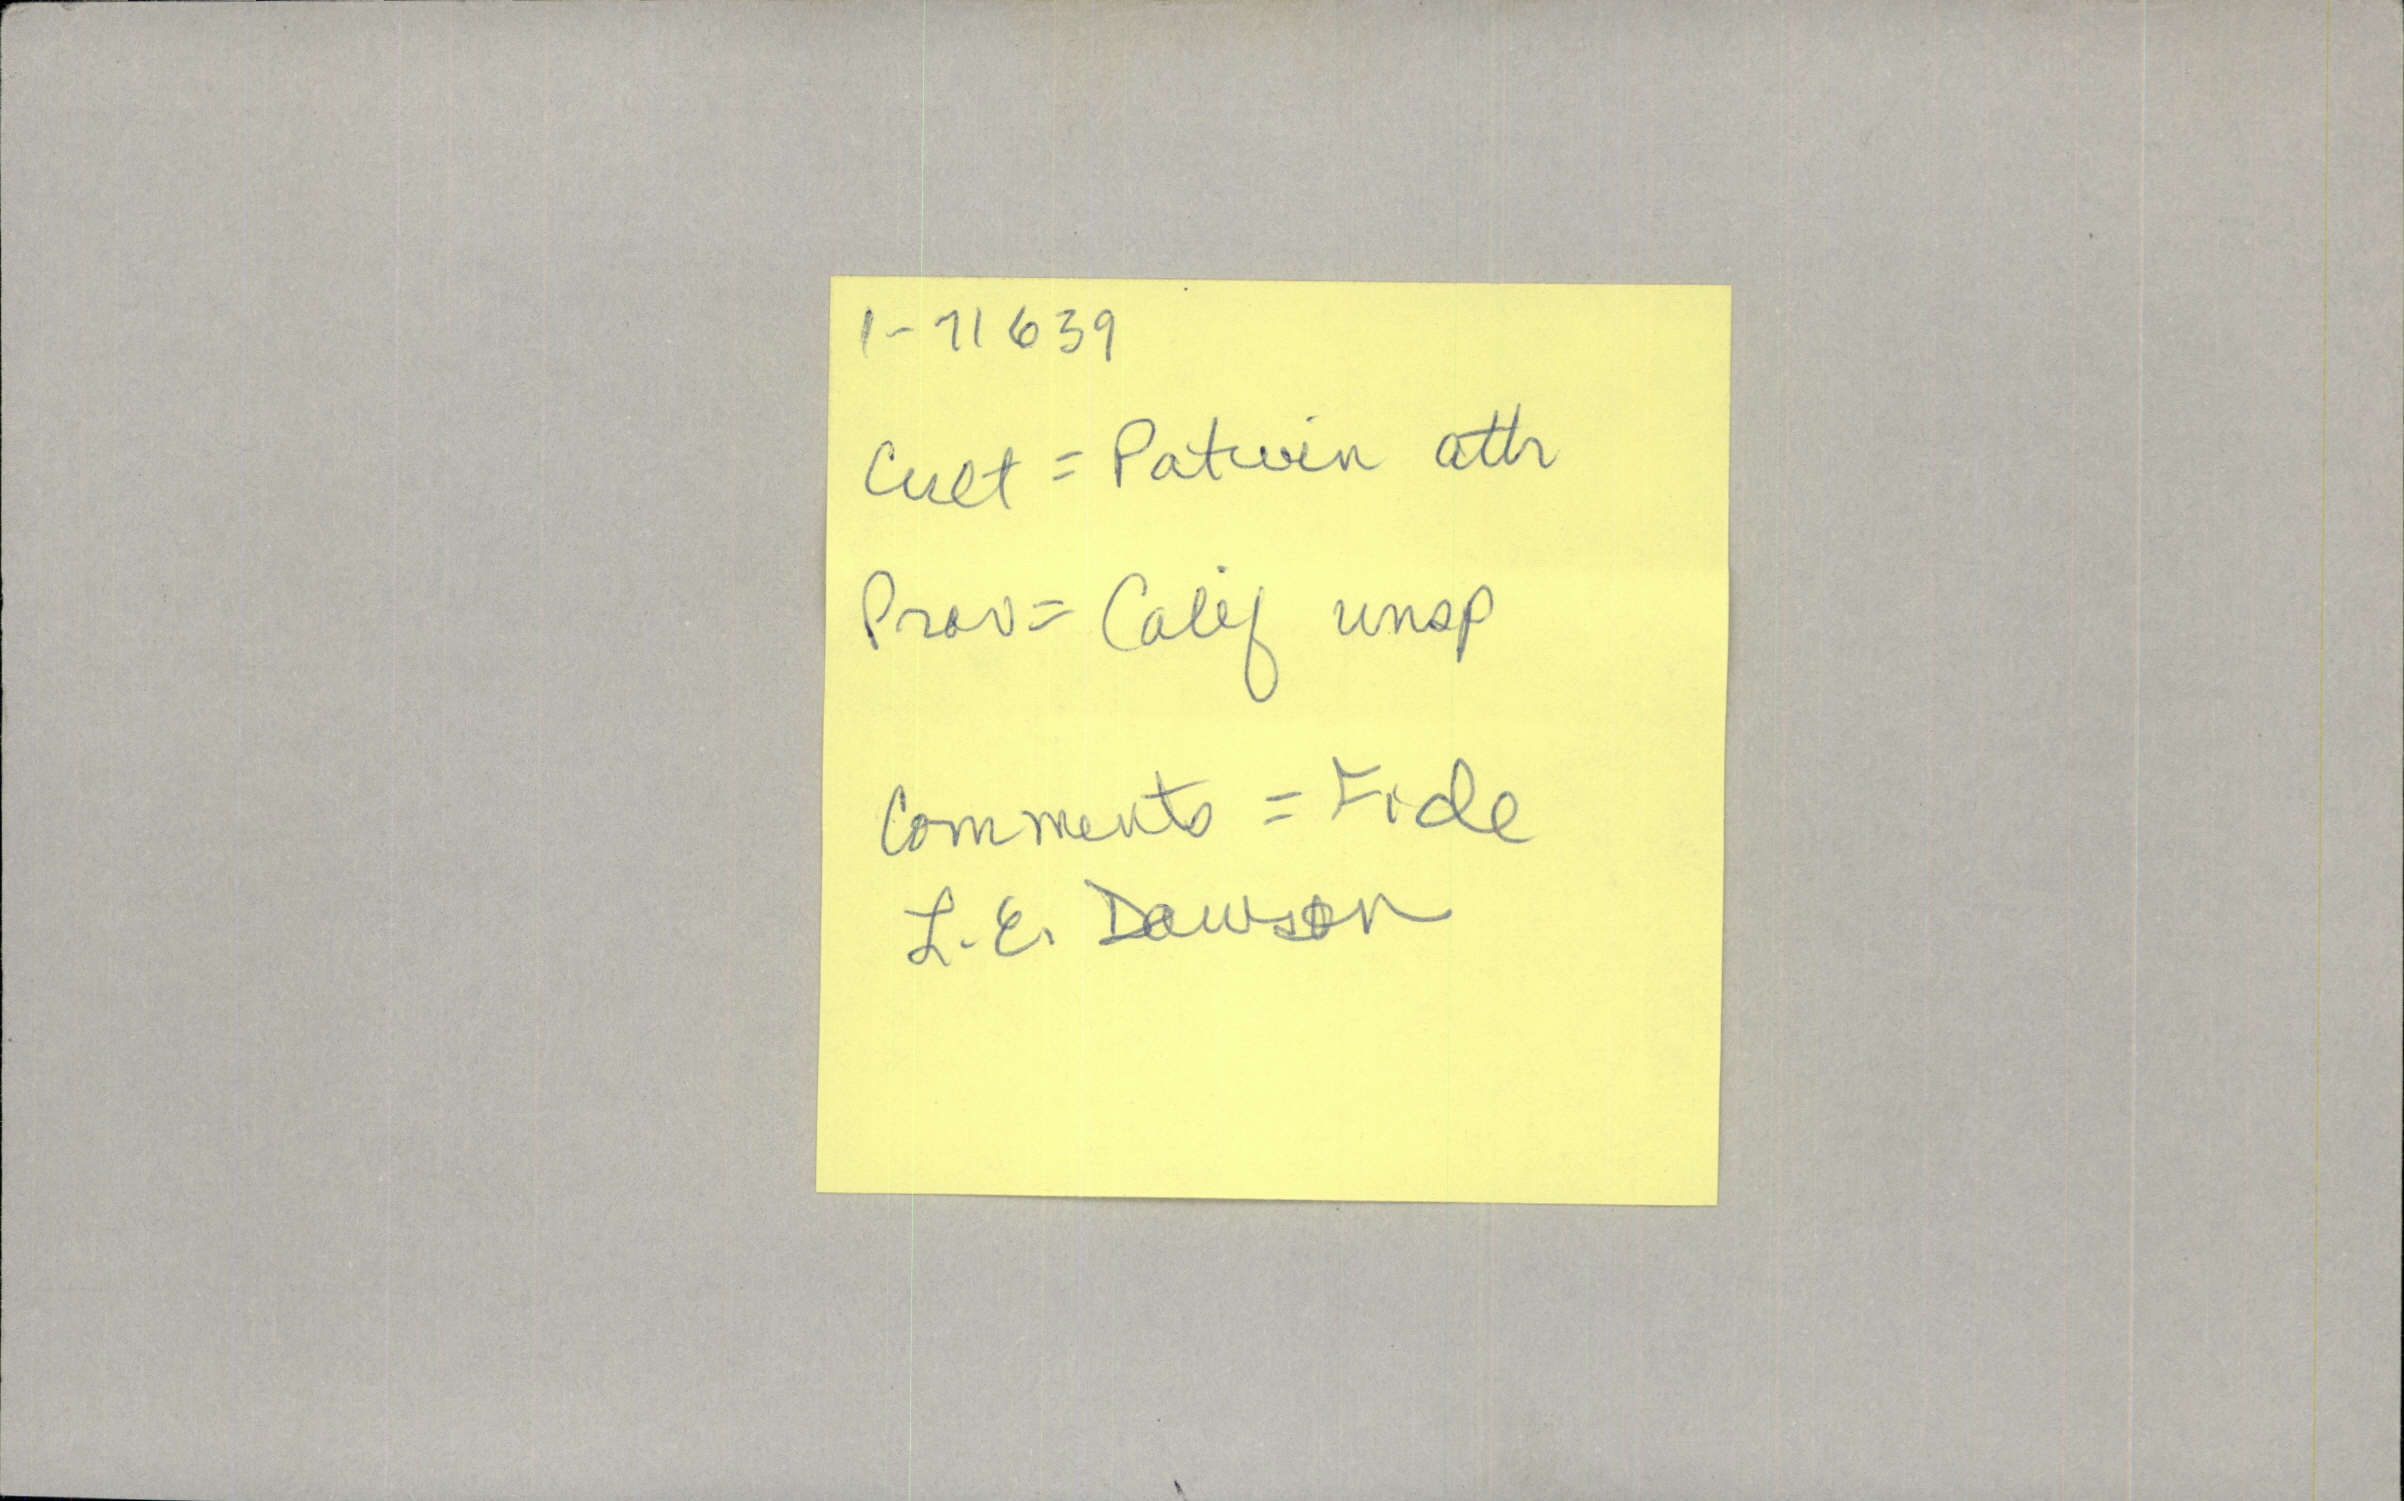 1-71639
Cult = Patwin attr
Prov = Calif unsp
Comments = Fide
L.E. Dawson